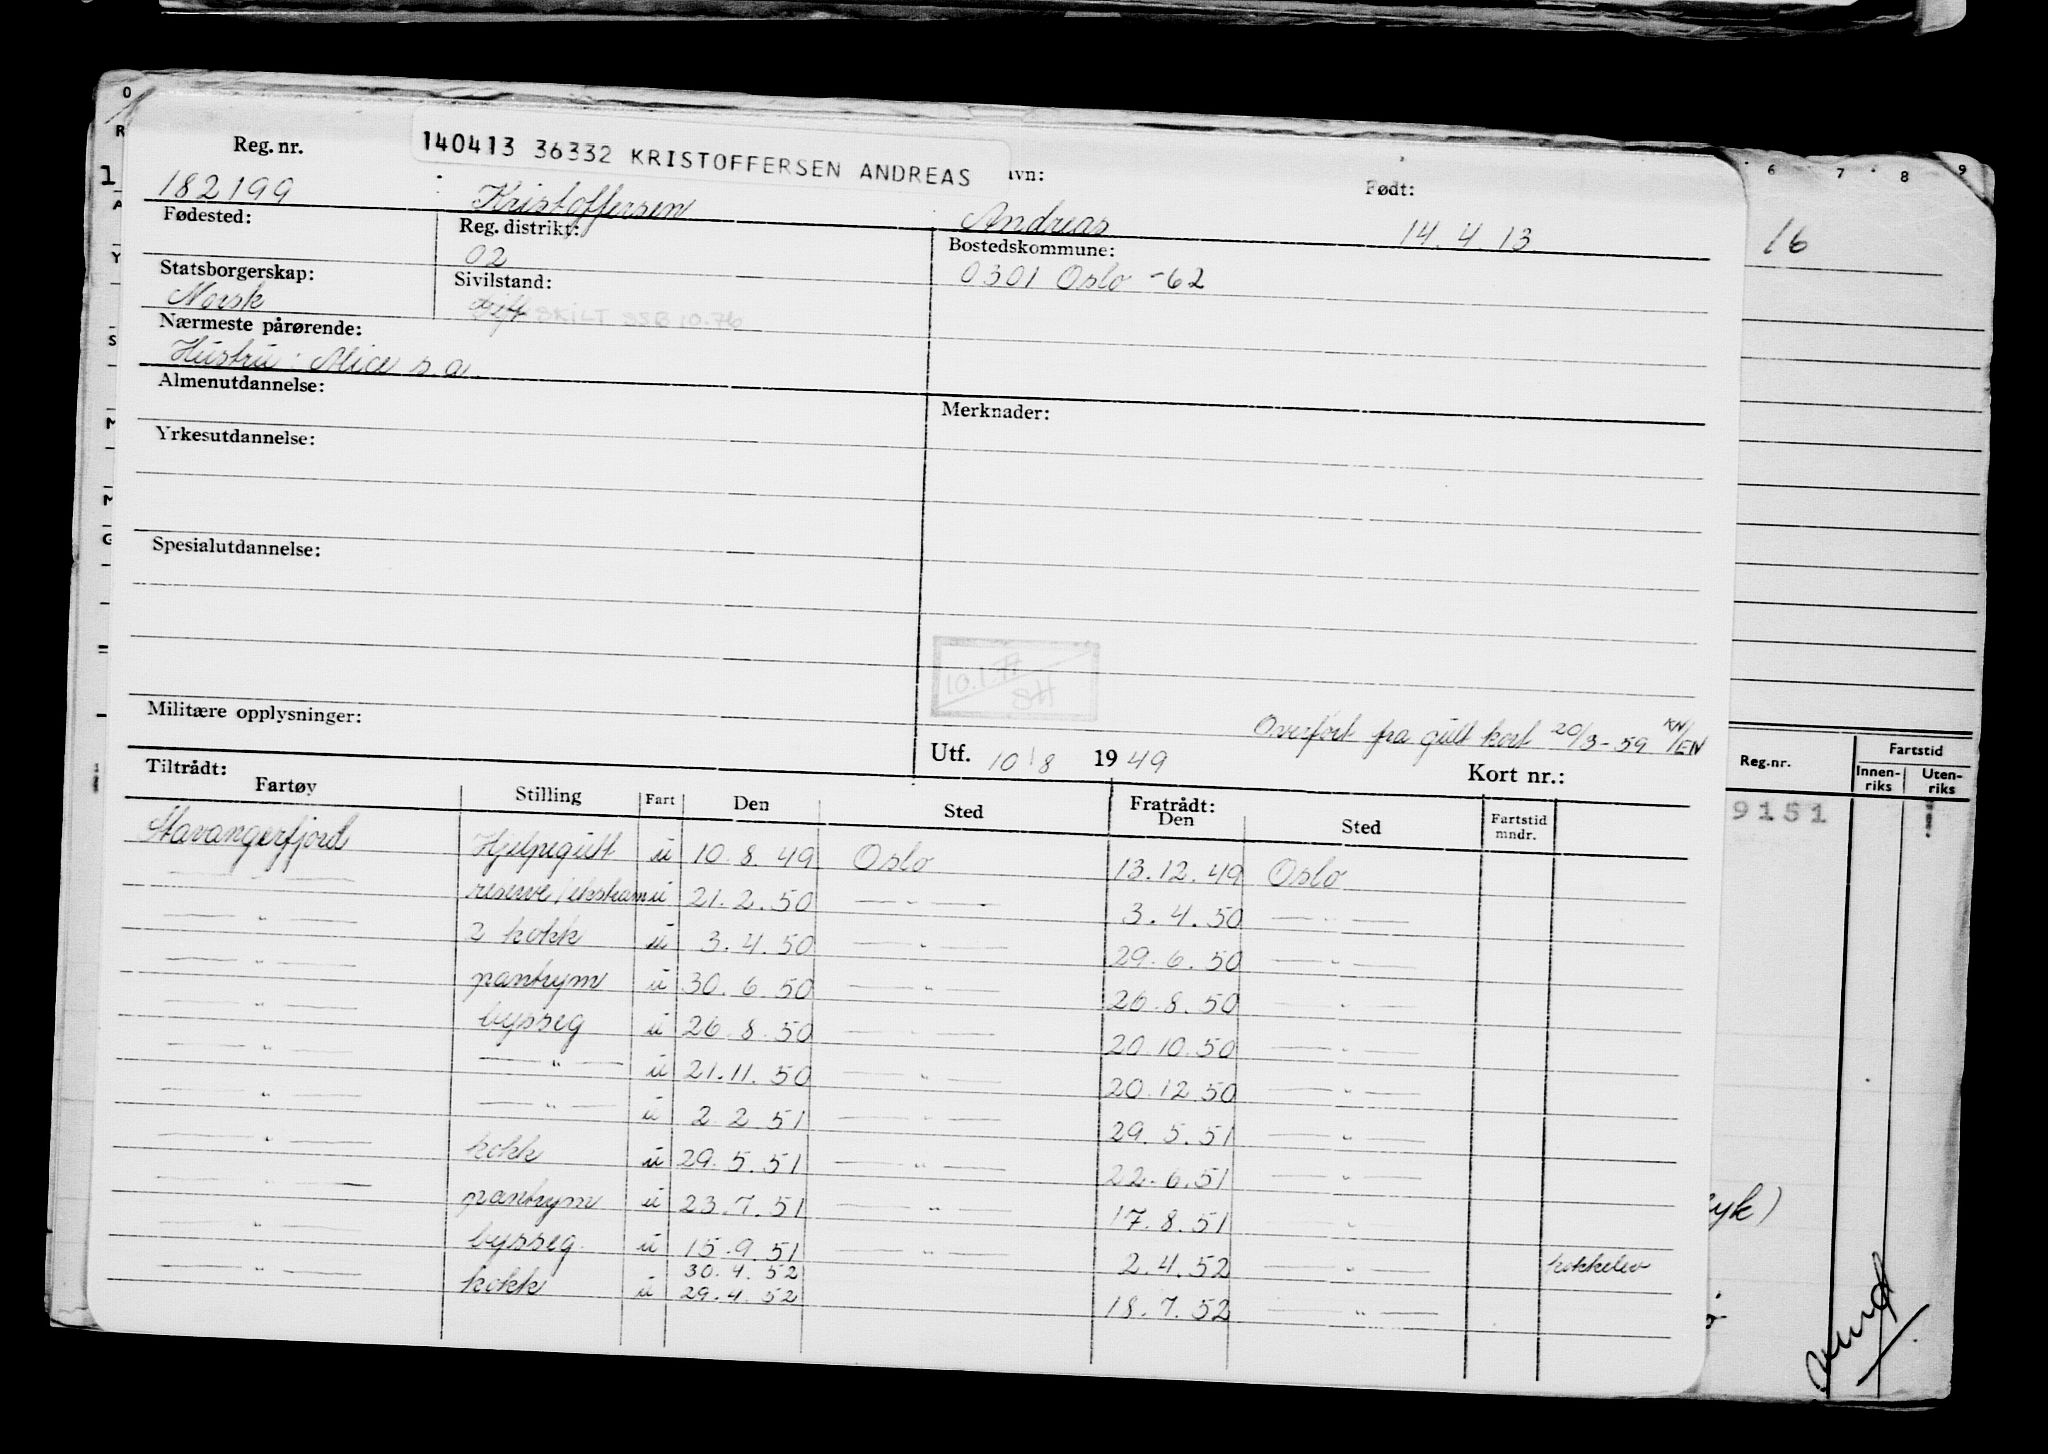 140413 36332 KRISTOFFERSEN ANDREAS
Reg. nr. vn: Født:
182199 Kristoffersen Andreas 14.4.13
Fødested: Reg. distrikt: Bostedskommune:
02 0301 Oslo -62
Statsborgerskap: Sivilstand:
Norsk Gift SKILT SSB 10.76
Nærmeste pårørende:
Hustru: Alice s.a.
Almenutdannelse: Merknader:
Yrkesutdannelse:
Spesialutdannelse:
10.1.77
SH
Militære opplysninger:
Overført fra gult kort 20/3-59 KN/EN
Utf. 10/8 1949 Kort nr.:
Tiltrådt: Fratrådt:
Fartøy Stilling Fart Den Sted Den Sted Fartstid mndr.
Stavangerfjord Hjelpegutt u 10.8.49 Oslo 13.12.49 Oslo
— " — reserve/ u 21.2.50 — " — 3.4.50 — " —
— " — 2 kokk u 3.4.50 — " — 29.6.50 — " —
— " — pantrym u 30.6.50 — " — 26.8.50 — " —
— " — bysseg u 26.8.50 — " — 20.10.50 — " —
— " — — " — u 21.11.50 — " — 20.12.50 — " —
— " — — " — u 2.2.51 — " — 29.5.51 — " —
— " — kokk u 29.5.51 — " — 22.6.51 — " —
— " — pantrym u 23.7.51 — " — 17.8.51 — " —
— " — bysseg. u 15.9.51 — " — 2.4.52 — " — kokkelev
30.4.52
— " — kokk u 29.4.52 18.7.52 — " —
6 7 8 9
16
Reg.nr. Fartstid
Innen-riks Uten-riks
9151
yk)